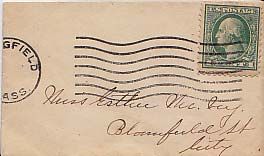 GFIELD
ASS.
U.S. POSTAGE
Miss Esther Mc
Bloomfield St
City